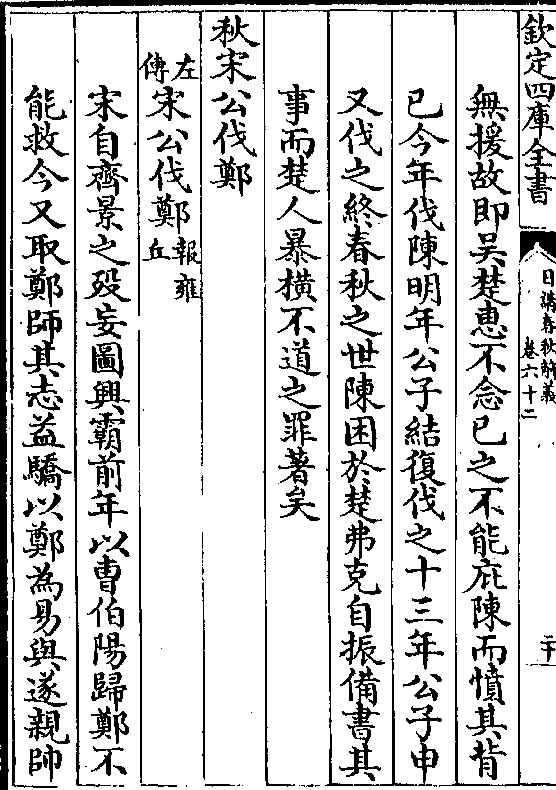 欽定四庫全書
日講春秋解義
卷六十二
二十
無援故即吴楚惠不念已之不能庇陳而憤其背
已今年伐陳明年公子結復伐之十三年公子申
又伐之終春秋之世陳困於楚弗克自振備書其
事而楚人暴横不道之罪著矣
秋宋公伐鄭
左傳宋公伐鄭報雍丘
宋自齊景之殁妄圖興霸前年以曹伯陽歸鄭不
能救今又取鄭師其志益驕以鄭為易與遂親帥